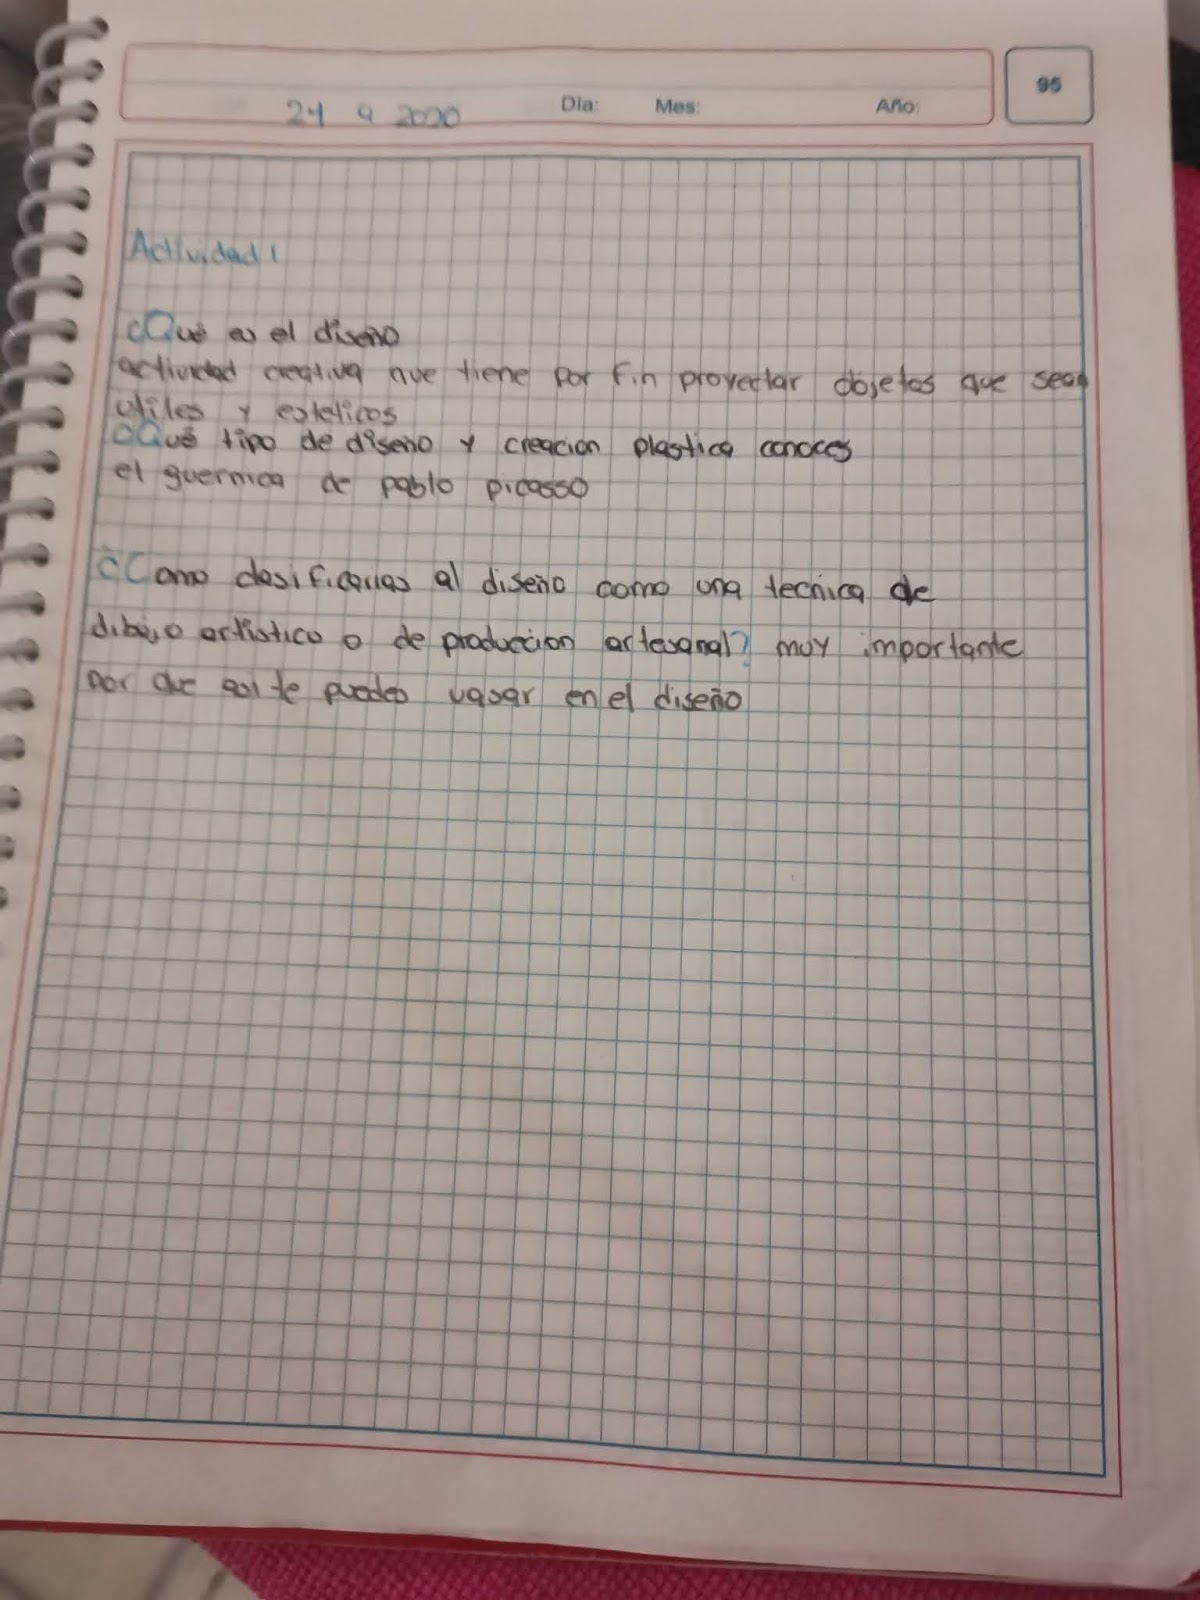 95
24 9 2020 Dia: Mes: Año:
Actividad 1
¿Qué es el diseño
actividad creativa que tiene por fin proyectar objetos que sean
utiles y esteticos
¿Qué tipo de diseño y creacion plastica conoces
el guernica de pablo picasso
¿Como clasificarias al diseño como una tecnica de
dibujo artistico o de produccion artesanal? muy importante
por que asi te puedes vasar en el diseño